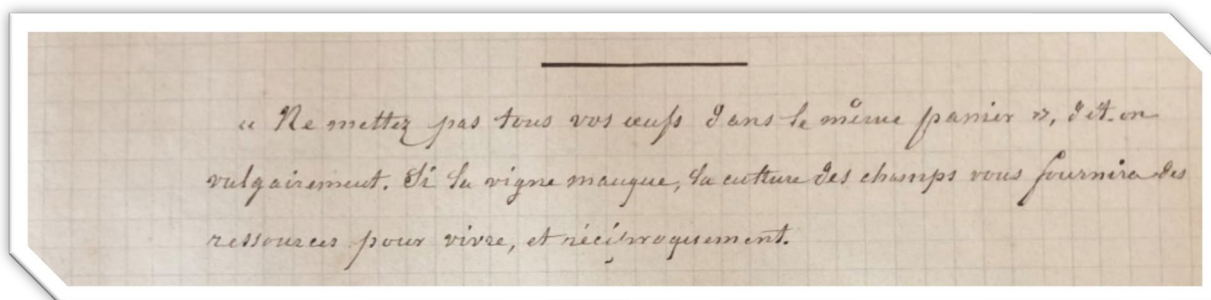 « Ne mettez pas tous vos œufs dans le même panier », dit-on
vulgairement. Si la vigne manque, la culture des champs vous fournira des
ressources pour vivre, et réciproquement.